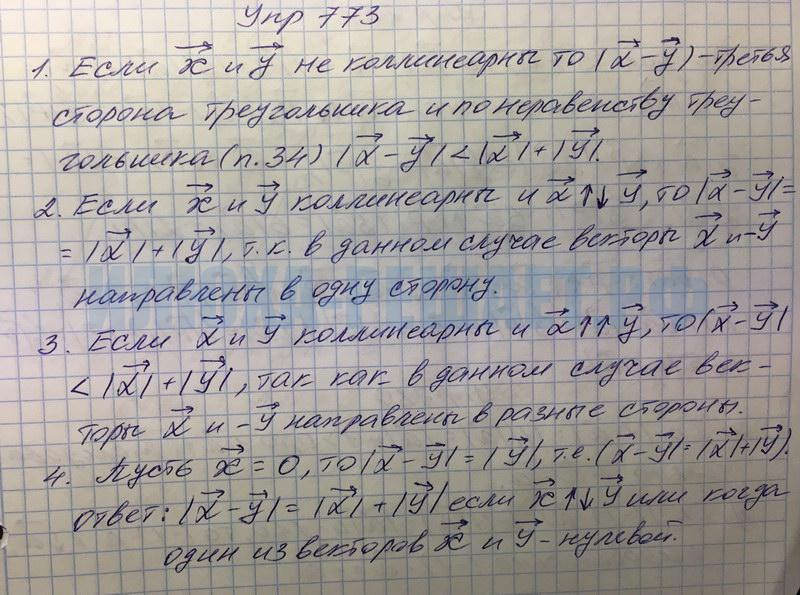 Упр 773
1. Если x⃗ и y⃗ не коллинеарны то |x⃗ - y⃗| - третья
сторона треугольника и по неравенству треу-
гольника (п. 34) |x⃗ - y⃗| < |x⃗| + |y⃗|.
2. Если x⃗ и y⃗ коллинеарны и x⃗ ↑↓ y⃗, то |x⃗ - y⃗| =
= |x⃗| + |y⃗|, т.к. в данном случае векторы x⃗ и -y⃗
направлены в одну сторону.
3. Если x⃗ и y⃗ коллинеарны и x⃗ ↑↑ y⃗, то |x⃗ - y⃗|
< |x⃗| + |y⃗|, так как в данном случае век-
торы x⃗ и -y⃗ направлены в разные стороны.
4. Пусть x⃗ = 0, то |x⃗ - y⃗| = |y⃗|, т.е. (x⃗ - y⃗| = |x⃗| + |y⃗|).
ответ: |x⃗ - y⃗| = |x⃗| + |y⃗| если x⃗ ↑↓ y⃗ или когда
один из векторов x⃗ и y⃗ - нулевой.